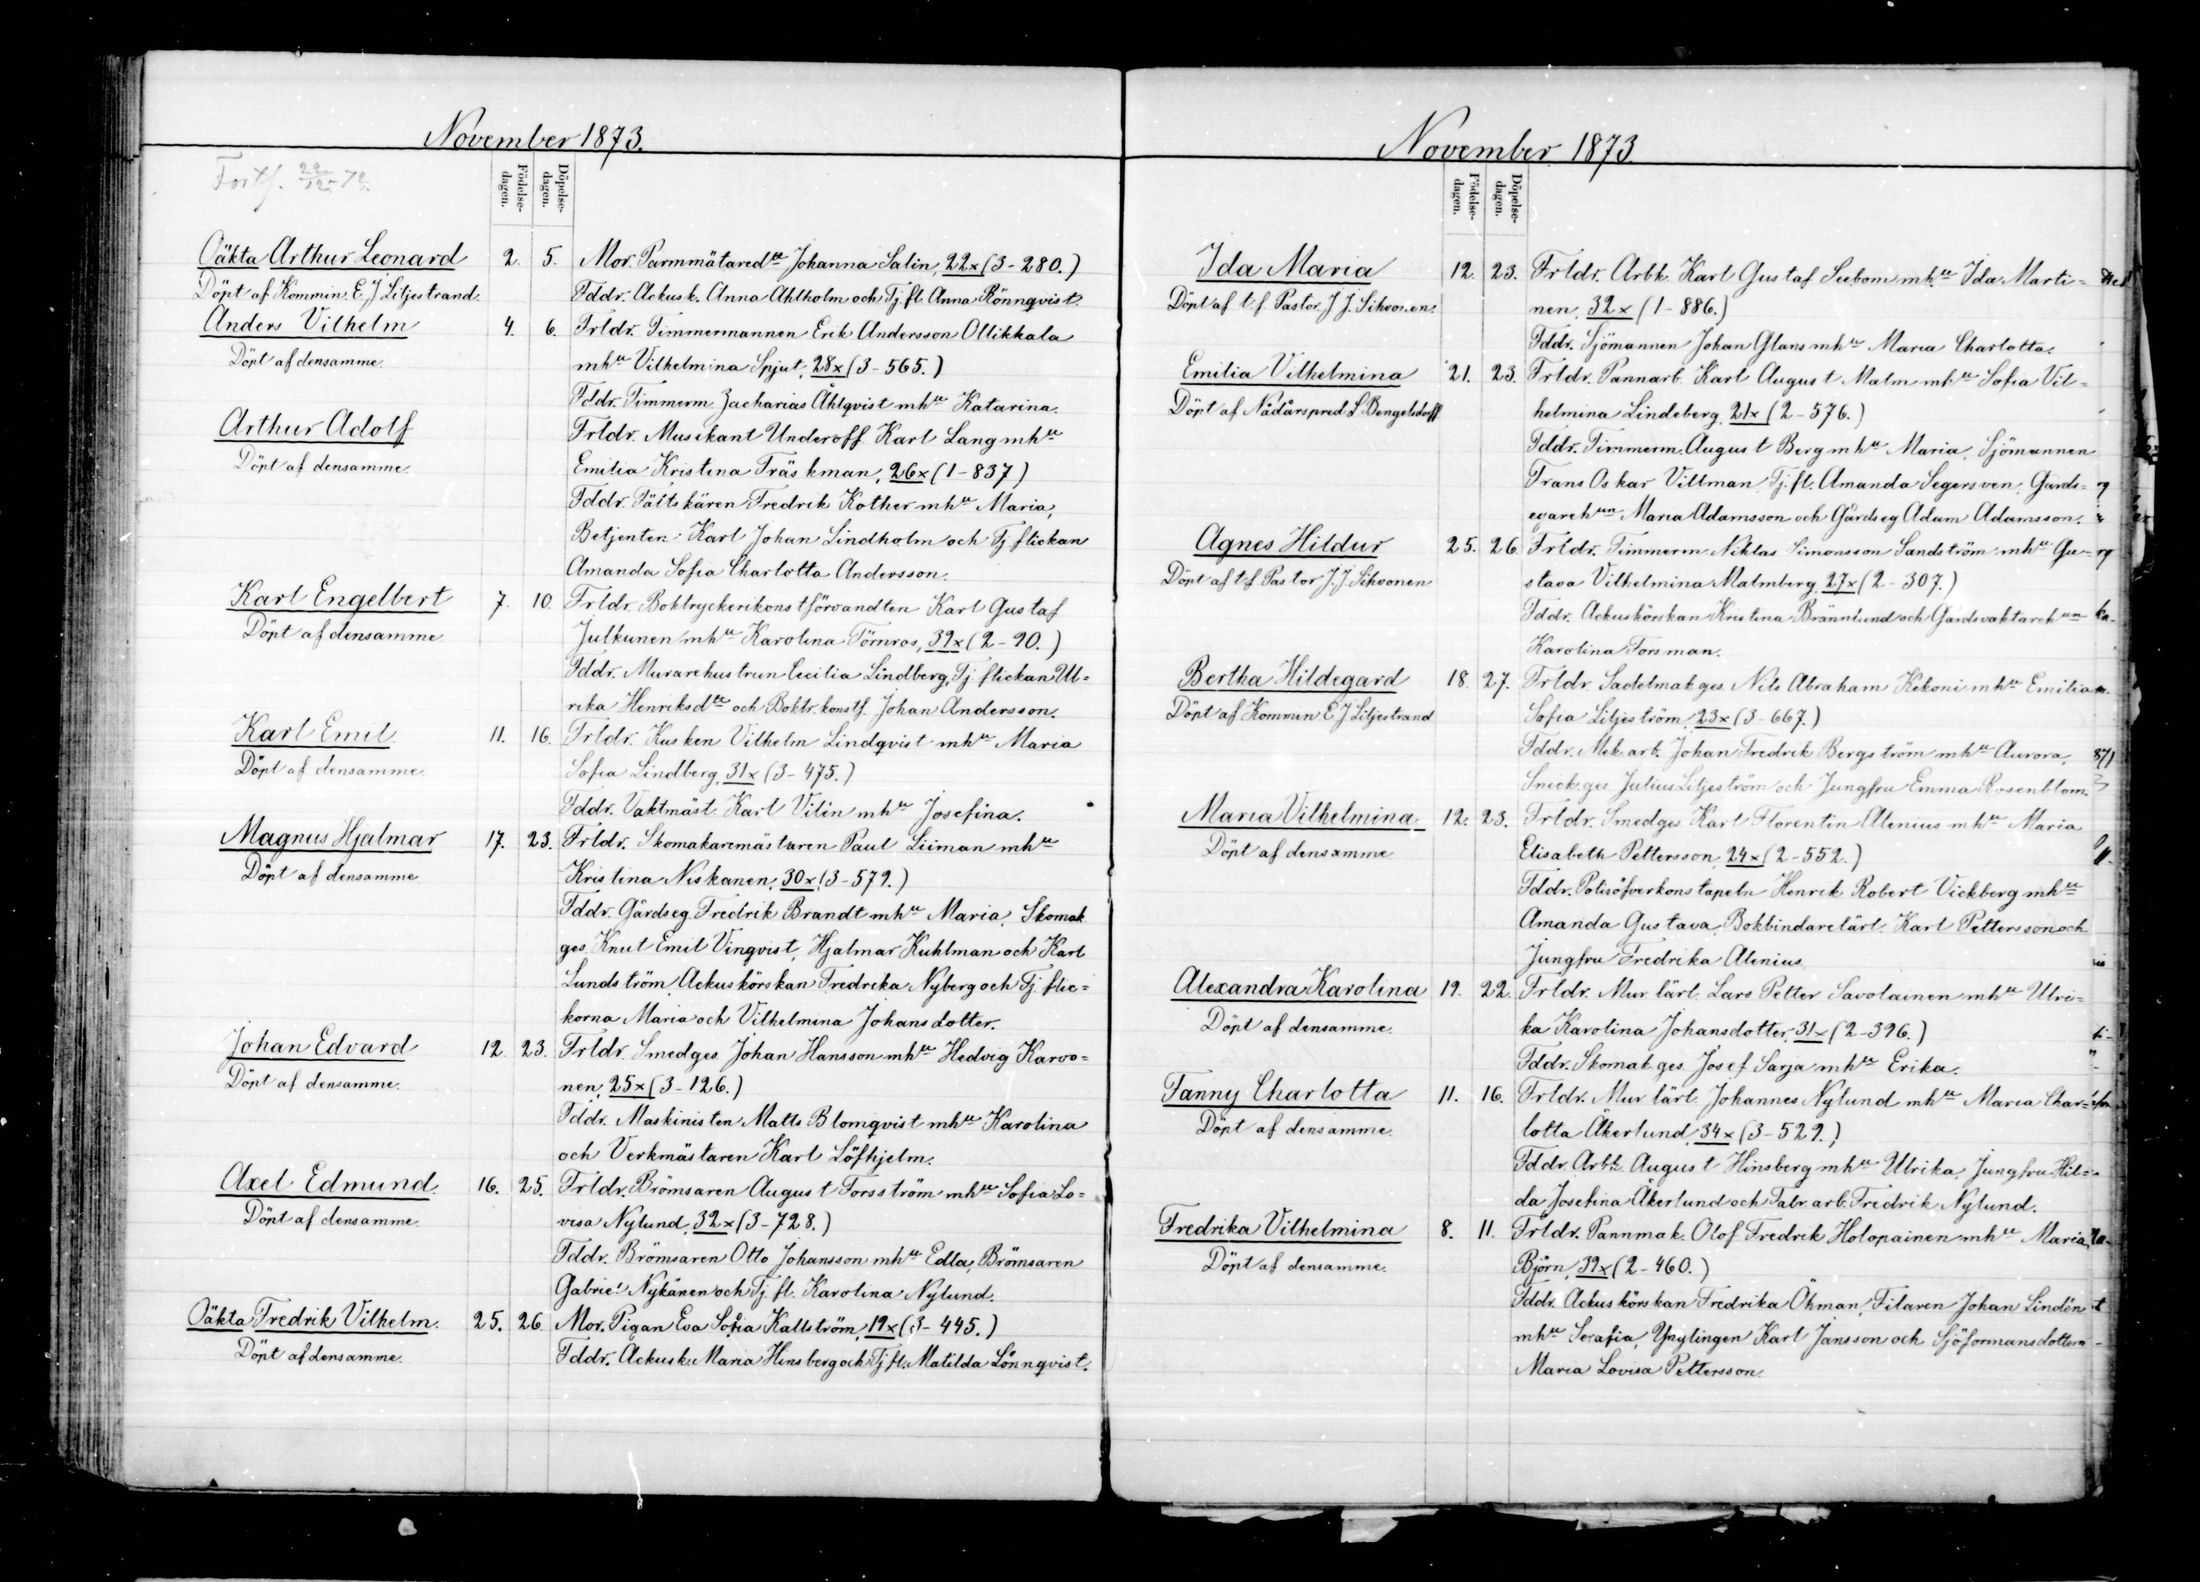 November 1873.
Fortf. 22/12-73.
Födelse-
dagen.
Döpelse-
dagen.
Oäkta Arthur Leonard 2. 5. Mor. Parmmätaredtr Johanna Salin, 22x (3-280.)
Döpt af Kommin. E J Liljestrand. Fddr. Ackusk. Anna Ahlholm och Tj. fl. Anna Rönnqvist.
Anders Vilhelm 4. 6. Frldr. Timmermannen Erik Andersson Ollikkala
Döpt af densamme. mhu Vilhelmina Spjut, 28x (3-565.)
Fddr. Timmerm. Zacharias Åhlqvist mhu Katarina.
Arthur Adolf Frldr. Musikant Underoff. Karl Lang mhu
Döpt af densamme. Emilia Kristina Träskman, 26x (1-837)
Fddr. Fältskären Fredrik Kother mhu Maria,
Betjenten Karl Johan Lindholm och Tj flickan
Amanda Sofia Charlotta Andersson.
Karl Engelbert 7. 10. Frldr. Boktryckerikonstförvandten Karl Gustaf
Döpt af densamme Julkunen mhu Karolina Törnros, 39x (2-90.)
Fddr. Murarehustrun Cecilia Lindberg, Tj flickan Ul-
rika Henriksdtr och Boktr. konstf. Johan Andersson.
Karl Emil 11. 16. Frldr. Kusken Vilhelm Lindqvist mhu Maria
Döpt af densamme. Sofia Lindberg, 31x (3-475.)
Fddr. Vaktmäst. Karl Vilén mhu Josefina.
Magnus Hjalmar 17. 23. Frldr. Skomakaremästaren Paul Liiman mhu
Döpt af densamme Kristina Niskanen, 30x (3-579.)
Fddr. Gårdseg. Fredrik Brandt mhu Maria, Skomak
ges. Knut Emil Vinqvist, Hjalmar Kuhlman och Karl
Lundström, Ackuskörskan Fredrika Nyberg och Tj. flic-
korna Maria och Vilhelmina Johansdotter.
Johan Edvard 12. 23. Frldr. Smedges. Johan Hansson mhu Hedvig Karvo-
Döpt af densamme. nen, 25x (3-126.)
Fddr. Maskinisten Matts Blomqvist mhu Karolina
och Verkmästaren Karl Löfhjelm.
Axel Edmund 16. 25. Frldr. Brömsaren August Forsström mhu Sofia Lo-
Döpt af densamme. visa Nylund, 32x (3-728.)
Fddr. Brömsaren Otto Johansson mhu Edla, Brömsaren
Gabriel Nykänen och Tj. fl. Karolina Nylund.
Oäkta Fredrik Vilhelm. 25. 26 Mor. Pigan Eva Sofia Kallström, 19x (3-445.)
Döpt af densamme. Fddr. Ackusk. Maria Hinsberg och Tj fl. Matilda Lönnqvist.
November 1873
Födelse-
dagen.
Döpelse-
dagen.
Ida Maria 12. 23. Frldr. Arbk. Karl Gustaf Seebom mhu Ida Marti-
Döpt af t. f. Pastor J. J. Sihvonen. nen, 32x (1-886.)
Fddr. Sjömannen Johan Glans mhu Maria Charlotta.
Emilia Vilhelmina 21. 23. Frldr. Pannarb. Karl August Malm mhu Sofia Vil-
Döpt af Nådårspred L. Bengelsdorff helmina Lindeberg, 21x (2-576.)
Fddr. Timmerm. August Berg mhu Maria, Sjömannen
Frans Oskar Villman, Tj. fl. Amanda Segersven, Gårds-
egareh:un Maria Adamsson och Gårdseg Adam Adamsson.
Agnes Hildur 25. 26 Frldr. Timmerm Niklas Simonsson Sandström mhu Gu-
Döpt af t f Pastor J. J Sihvonen stava Vilhelmina Malmberg, 27x (2-307.)
Fddr. Ackuskörskan Kristina Brännlund och Gårdsvaktareh:un
Karolina Forsman.
Bertha Hildegard 18. 27. Frldr. Sadelmak ges. Nils Abraham Kekoni mhu Emilia
Döpt af Kommin E J Liljestrand Sofia Liljeström, 23x (3-667.)
Fddr. Mek. arb. Johan Fredrik Bergström mhu Aurora,
Snick. ges Julius Liljeström och Jungfru Emma Rosenblom.
Maria Vilhelmina 12. 23. Frldr. Smedges. Karl Florentin Alenius mhu Maria
Döpt af densamme Elisabeth Pettersson, 24x (2-552.)
Fddr. Polisöfverkonstapeln Henrik Robert Vickberg mhu
Amanda Gustava, Bokbindarelärl. Karl Pettersson och
Jungfru Fredrika Alenius
Alexandra Karolina 19. 22. Frldr. Mur lärl. Lars Petter Savolainen mhu Ulri-
Döpt af densamme. ka Karolina Johansdotter, 31x (2-396.)
Fddr. Skomak ges. Josef Sarja mhu Erika.
Fanny Charlotta 11. 16. Frldr. Mur lärl Johannes Nylund mhu Maria Char-
Döpt af densamme. lotta Åkerlund, 34x (3-529.)
Fddr. Arbk. August Hinsberg mhu Ulrika, Jungfru Hil-
da Josefina Åkerlund och Fabr. arb. Fredrik Nylund.
Fredrika Vilhelmina 8. 11. Frldr. Pannmak. Olof Fredrik Holopainen mhu Maria
Döpt af densamme. Björn, 39x (2-460.)
Fddr. Ackuskörskan Fredrika Öhman, Filaren Johan Lindén
mhu Serafia, Ynglingen Karl Jansson och Sjöformansdottern
Maria Lovisa Pettersson.